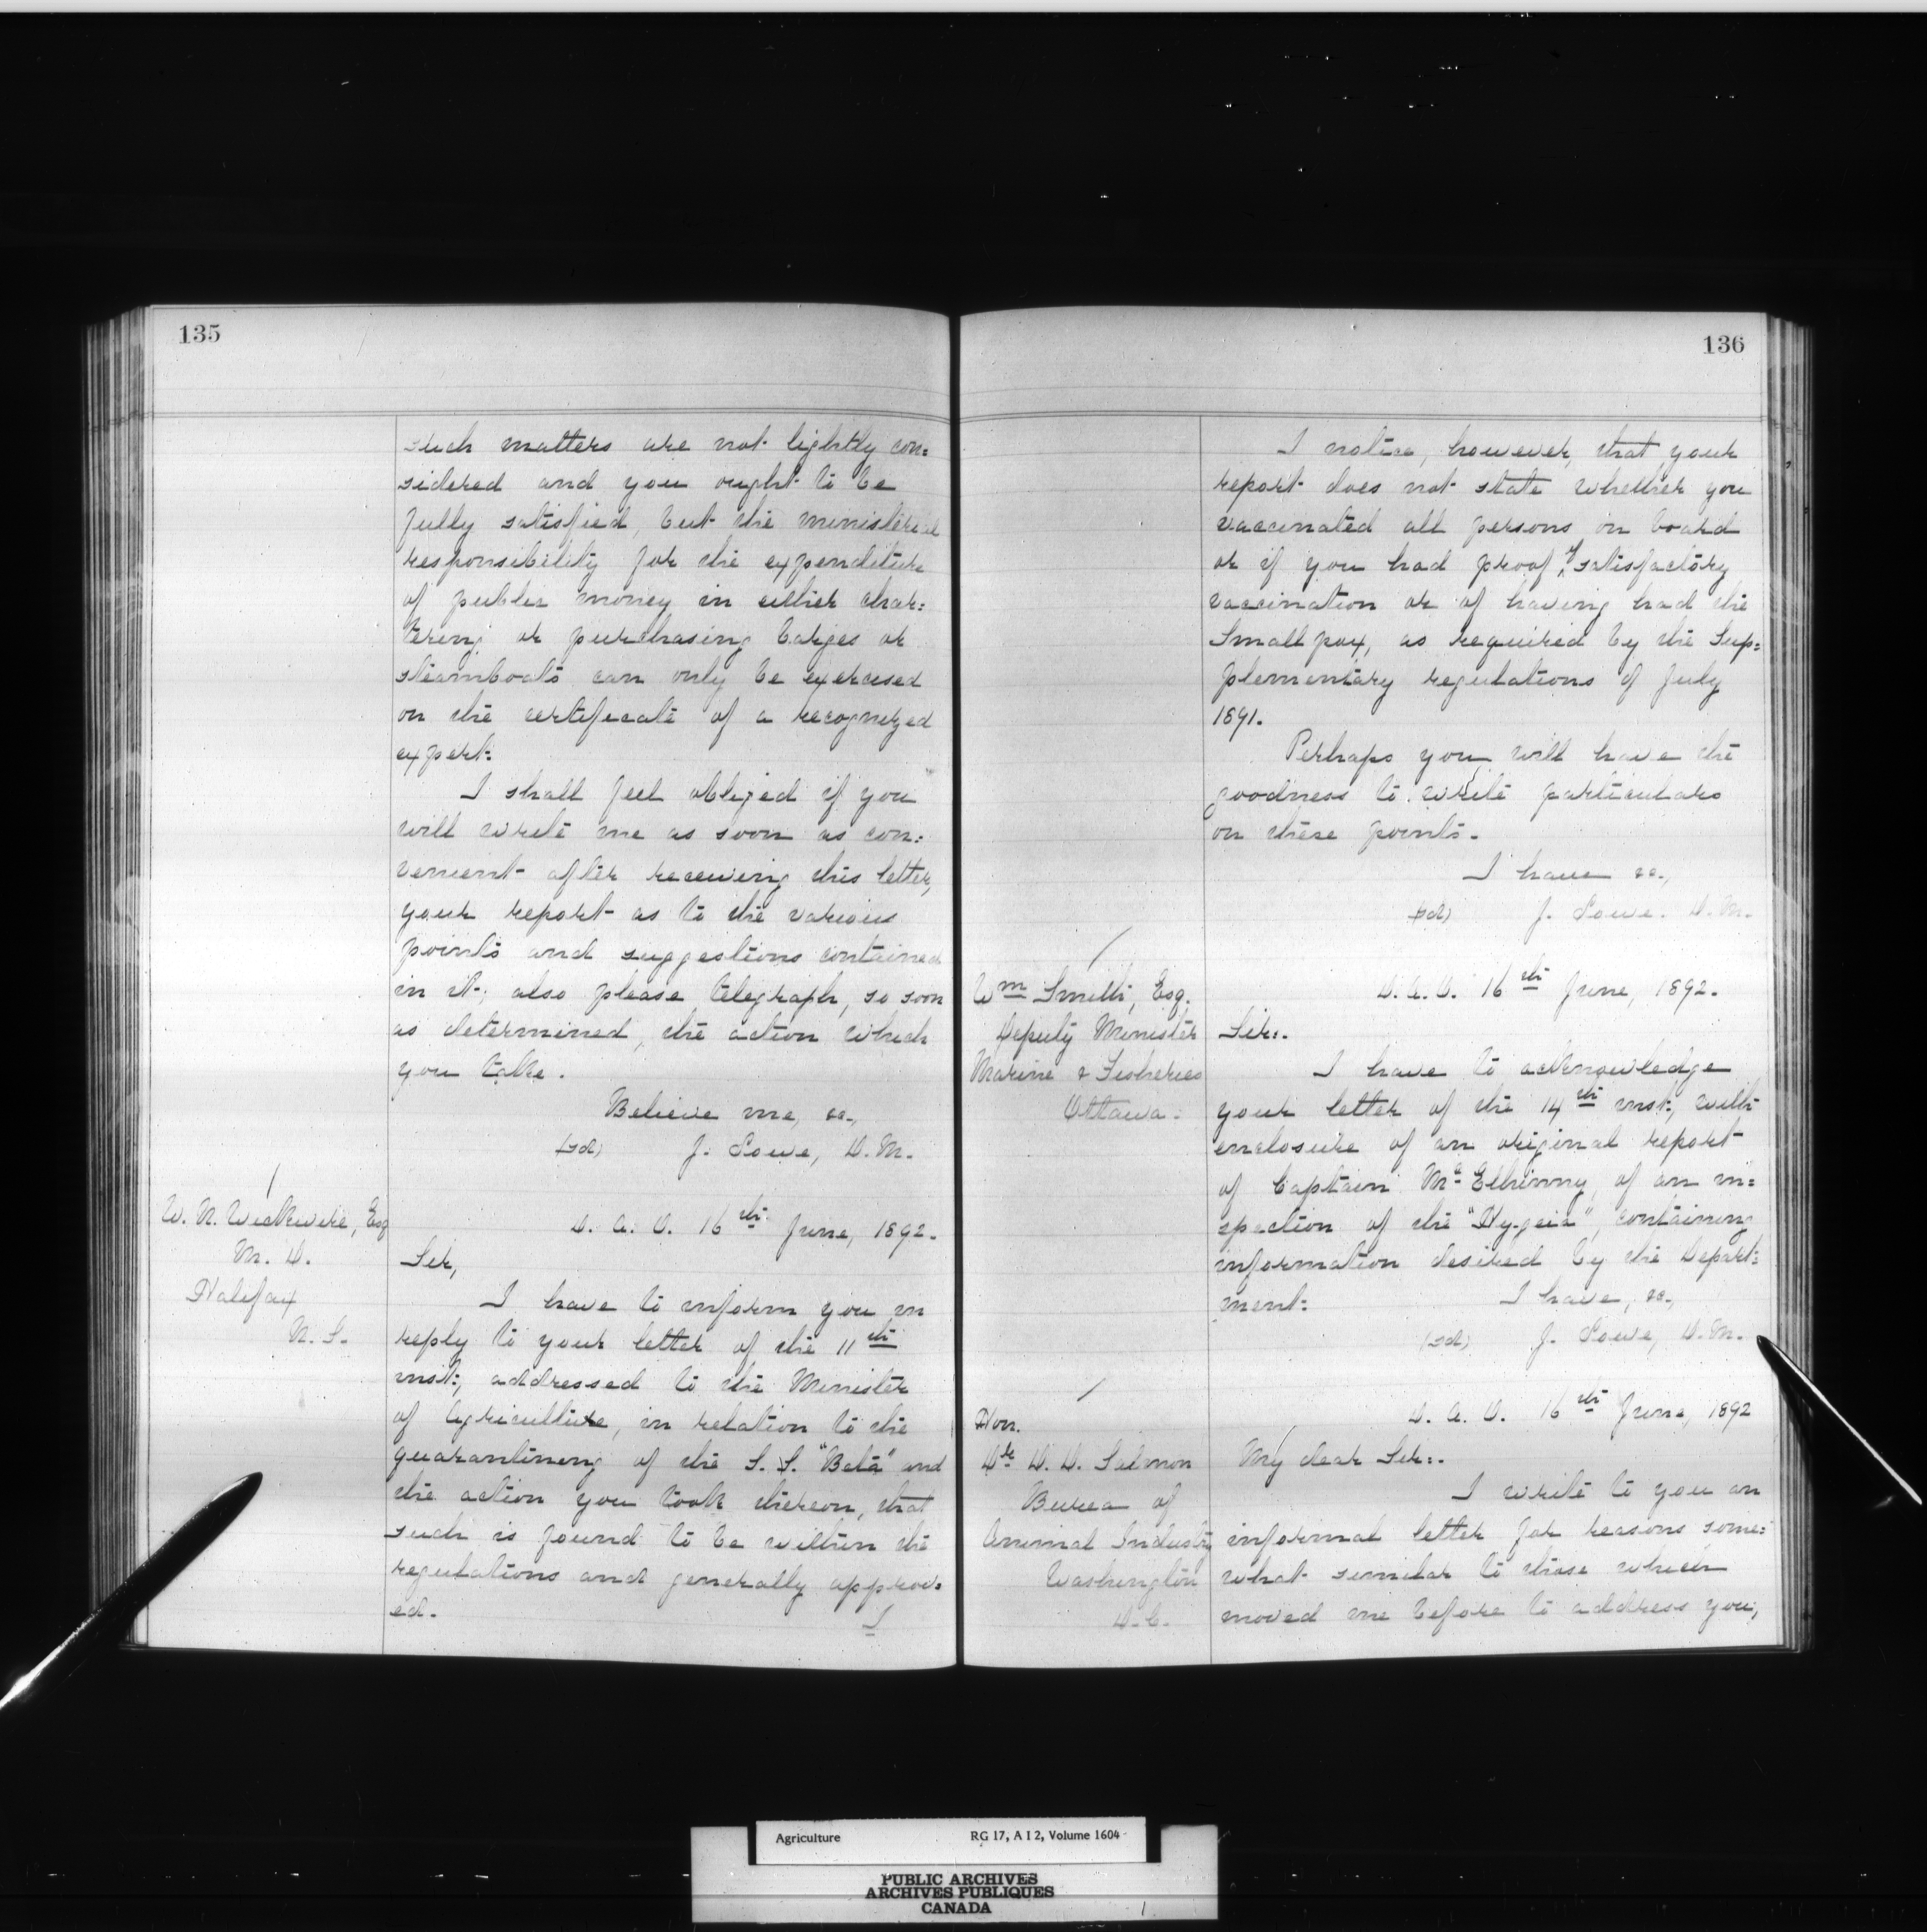 135
such matters are not lightly con=
sidered and you ought to be
fully satisfied, but the ministerial
responsibility for the expenditure
of public money in either char=
tering or purchasing barges or
steamboats can only be exercised
on the certificate of a recognized
expert.
I shall feel obliged if you
will write me as soon as con=
venient after receiving this letter,
your report as to the various
points and suggestions contained
in it; also please telegraph, so soon
as determined, the action which
you take.
Believe me, &c.,
(sd) J. Lowe, D.M.
W. N. Wickwire, Esq
M. D.
Halifax
N. S.
D. A. O. 16th June, 1892.
Sir,
I have to inform you in
reply to your letter of the 11th
inst., addressed to the Minister
of Agriculture, in relation to the
quarantining of the S. S. "Beta" and
the action you took thereon, that
such is found to be within the
regulations and generally approv=
ed.
I
136
I notice, however, that your
report does not state whether you
vaccinated all persons on board
or if you had proof of satisfactory
vaccination or of having had the
Small pox, as required by the Sup=
plementary regulations of July
1891.
Perhaps you will have the
goodness to write particulars
on these points.
I have &c.,
(sd) J. Lowe. D.M.
Wm Smith, Esq.
Deputy Minister
Marine & Fisheries
Ottawa.
D. A. O. 16th June, 1892.
Sir:.
I have to acknowledge
your letter of the 14th inst., with
enclosure of an original report
of Captain McElhinny, of an in=
spection of the "Hygeia", containing
information desired by the Depart=
ment. I have, &c.,
(sd) J. Lowe, D.M.
Hon.
Dr D. D. Salmon
Burea of
Animal Industry
Washington
D.C.
D. A. O. 16th June, 1892
My dear Sir:.
I write to you an
informal letter for reasons some=
what similar to those which
moved me before to address you,
Agriculture RG 17, A I 2, Volume 1604
PUBLIC ARCHIVES
ARCHIVES PUBLIQUES
CANADA